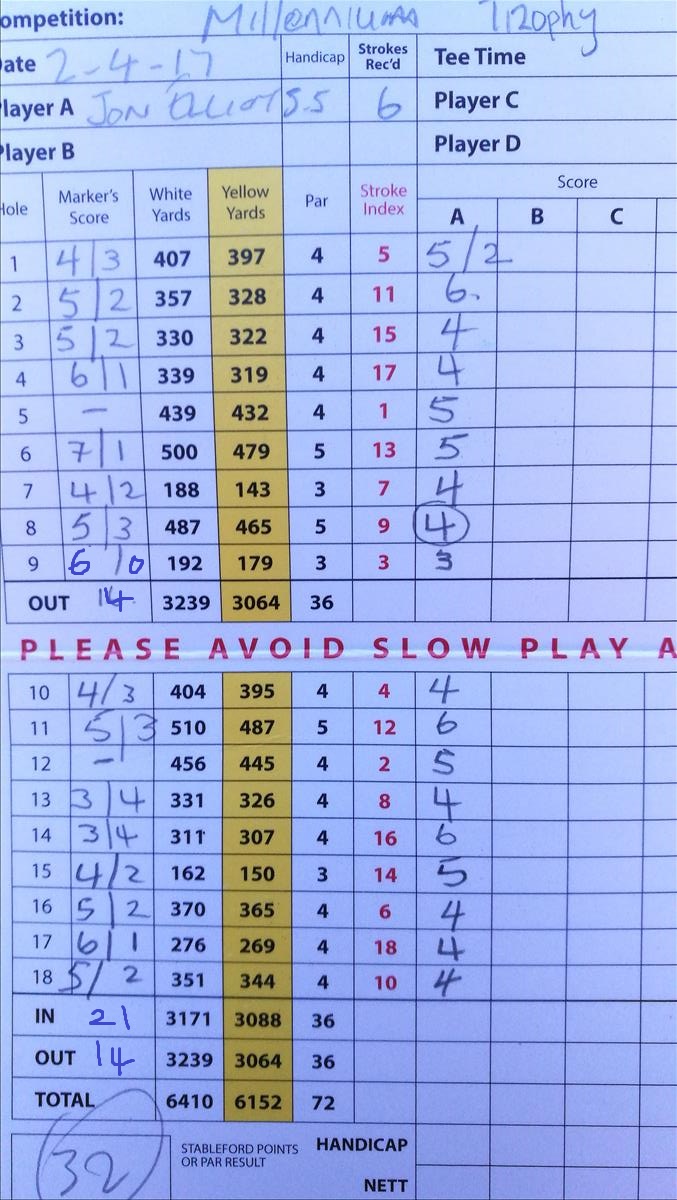 ompetition: Millennium Trophy
ate 2-4-17 Handicap Strokes Rec'd Tee Time
layer A JON 5.5 6 Player C
layer B Player D
Hole Marker's Score White Yards Yellow Yards Par Stroke Index Score
A B C
1 4/3 407 397 4 5 5/2
2 5/2 357 328 4 11 6.
3 5/2 330 322 4 15 4
4 6/1 339 319 4 17 4
5 – 439 432 4 1 5
6 7/1 500 479 5 13 5
7 4/2 188 143 3 7 4
8 5/3 487 465 5 9 4
9 6/0 192 179 3 3 3
OUT 14 3239 3064 36
PLEASE AVOID SLOW PLAY A
10 4/3 404 395 4 4 4
11 5/3 510 487 5 12 6
12 – 456 445 4 2 5
13 3/4 331 326 4 8 4
14 3/4 311 307 4 16 6
15 4/2 162 150 3 14 5
16 5/2 370 365 4 6 4
17 6/1 276 269 4 18 4
18 5/2 351 344 4 10 4
IN 21 3171 3088 36
OUT 14 3239 3064 36
TOTAL 6410 6152 72
32 STABLEFORD POINTS HANDICAP
OR PAR RESULT
NETT